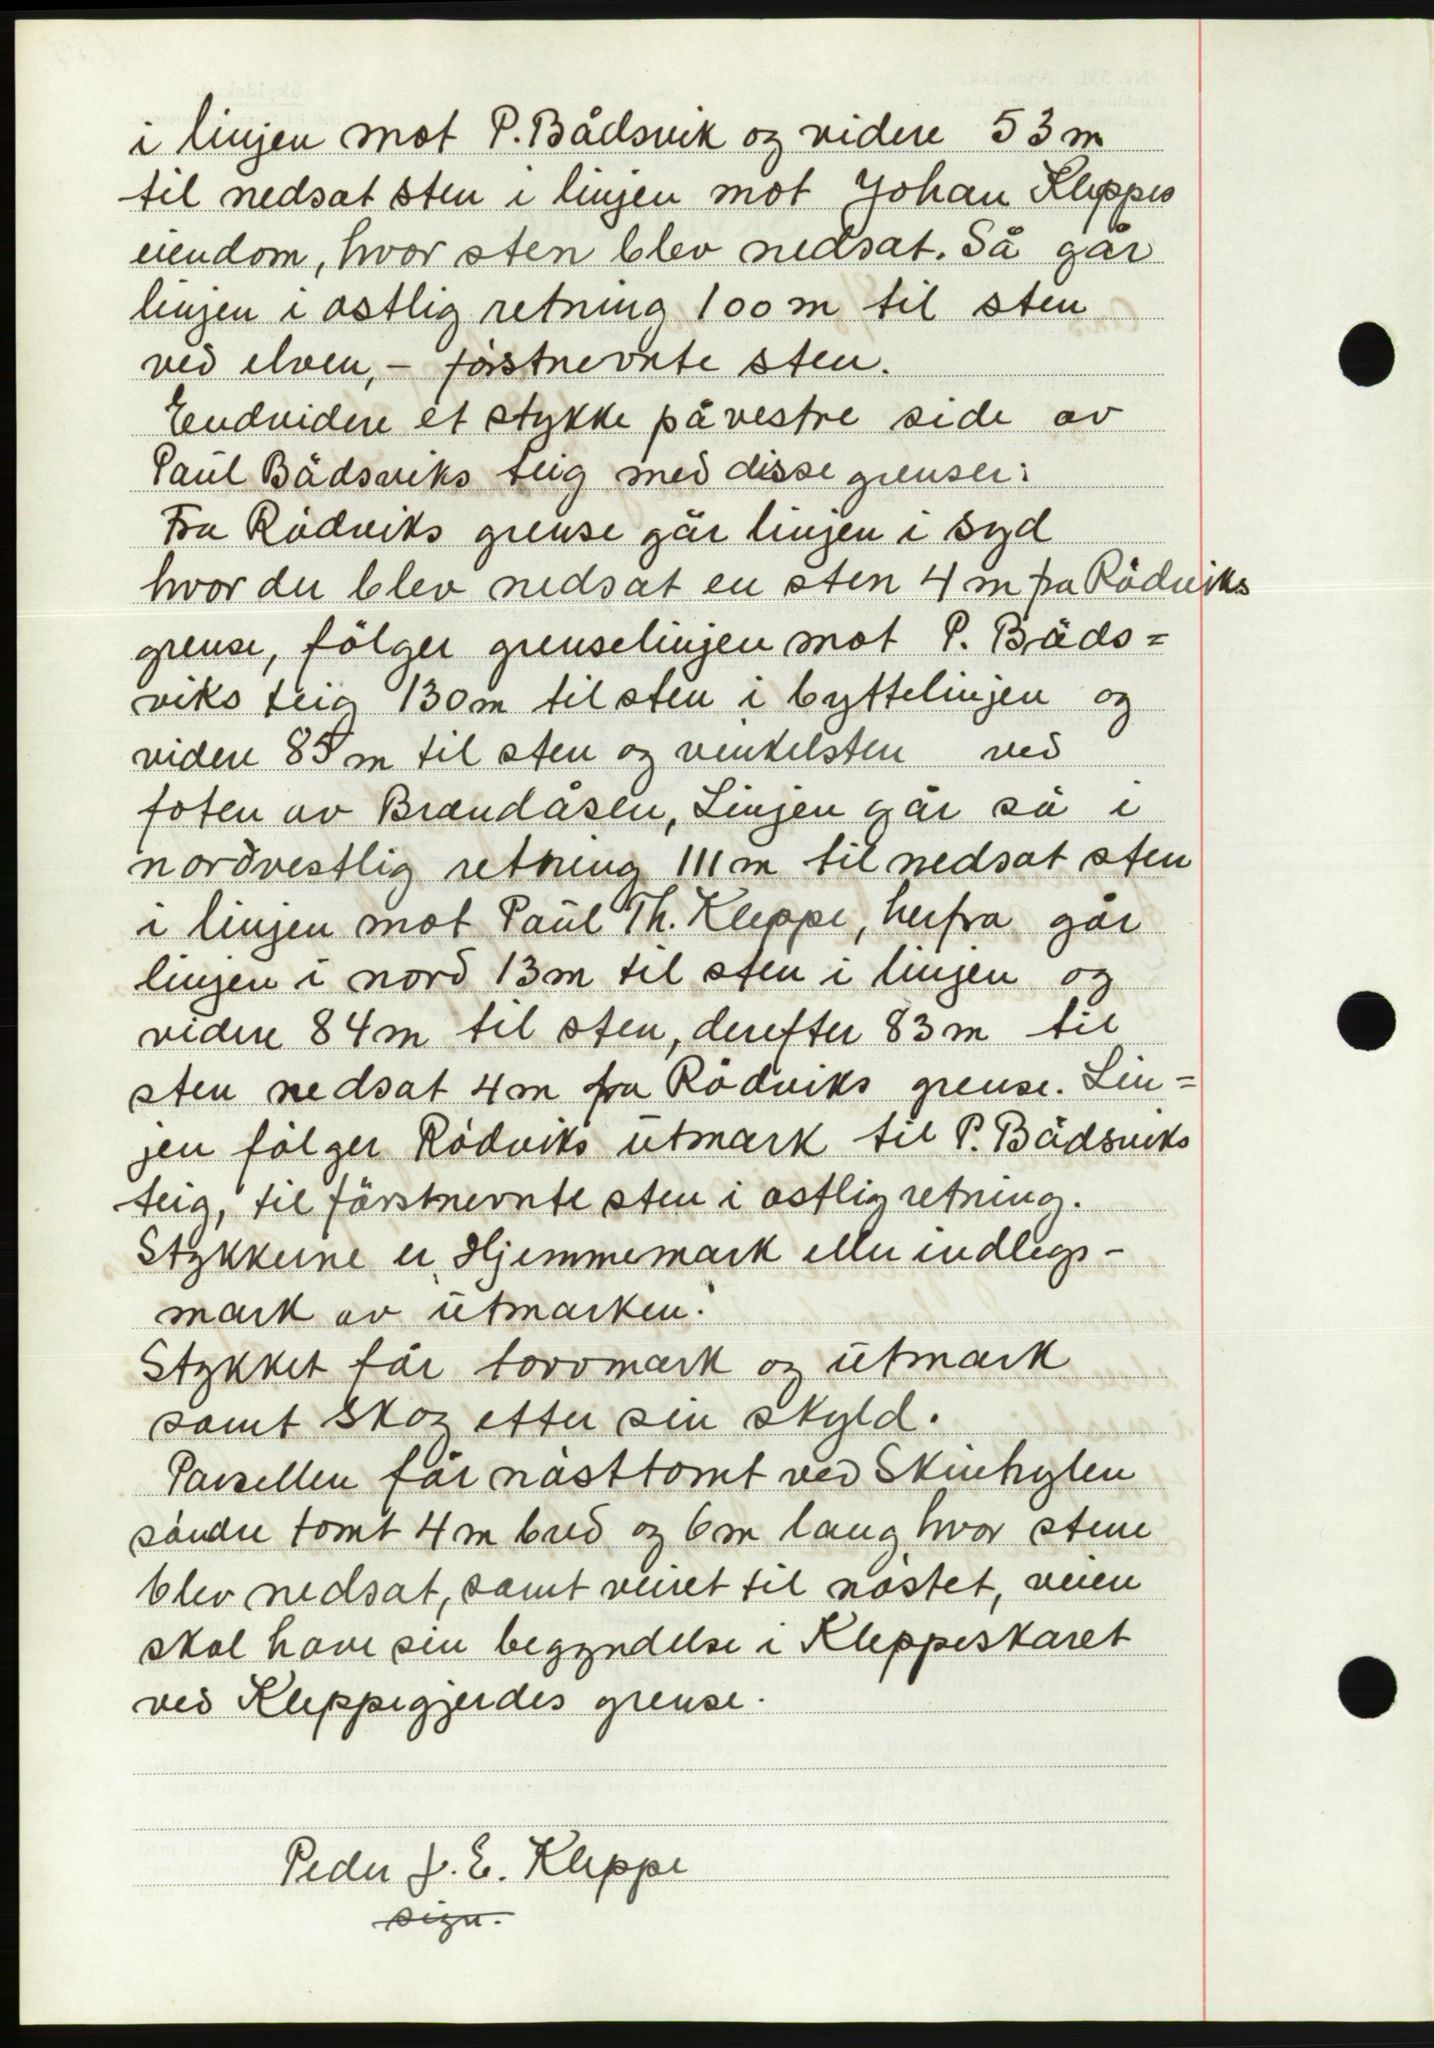 i linjen mot P. Bådsvik og videre 53 m
til nedsat sten i linjen mot Johan Kleppes
eiendom, hvor sten blev nedsat. Så går
linjen i østlig retning 100 m til sten
ved elven, – förstnevnte sten.
Endvidere et stykke på vestre side av
Paul Bådsviks teig med disse grenser:
Fra Rödviks grense går linjen i syd
hvor der blev nedsat en sten 4 m fra Rödviks
grense, fölger grenselinjen mot P. Båds=
viks teig 130 m til sten i byttelinjen og
videre 85 m til sten og vinkelsten ved
foten av Brandåsen, Linjen går så i
nordvestlig retning 111 m til nedsat sten
i linjen mot Paul Th. Kleppe, herfra går
linjen i nord 13 m til sten i linjen og
videre 84 m til sten, derefter 83 m til
sten nedsat 4 m fra Rödviks grense. Lin=
jen fölger Rödviks utmark til P. Bådsviks
teig, til förstnevnte sten i østlig retning.
Stykkerne er Hjemmemark eller indlegs-
mark av utmarken.
Stykket får torvmark og utmark
samt skog etter sin skyld.
Parsellen får nösttomt ved Skinhylen
söndre tomt 4 m bred og 6 m lang hvor stene
blev nedsat, samt veiret til nöstet, veien
skal have sin begyndelse i Kleppeskaret
ved Kleppegjerdes grense.
Peder J. E. Kleppe
sign.